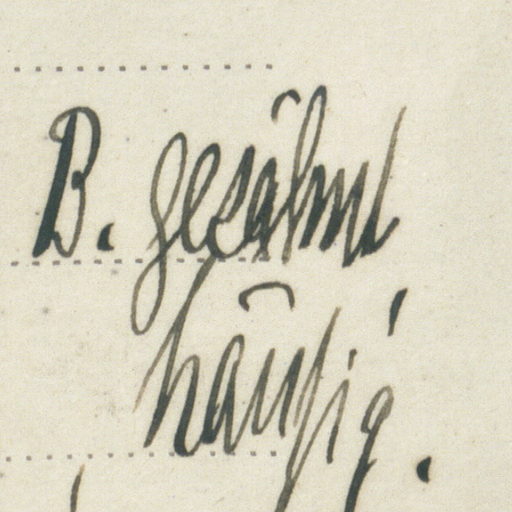 B. gesähnt
häufig.